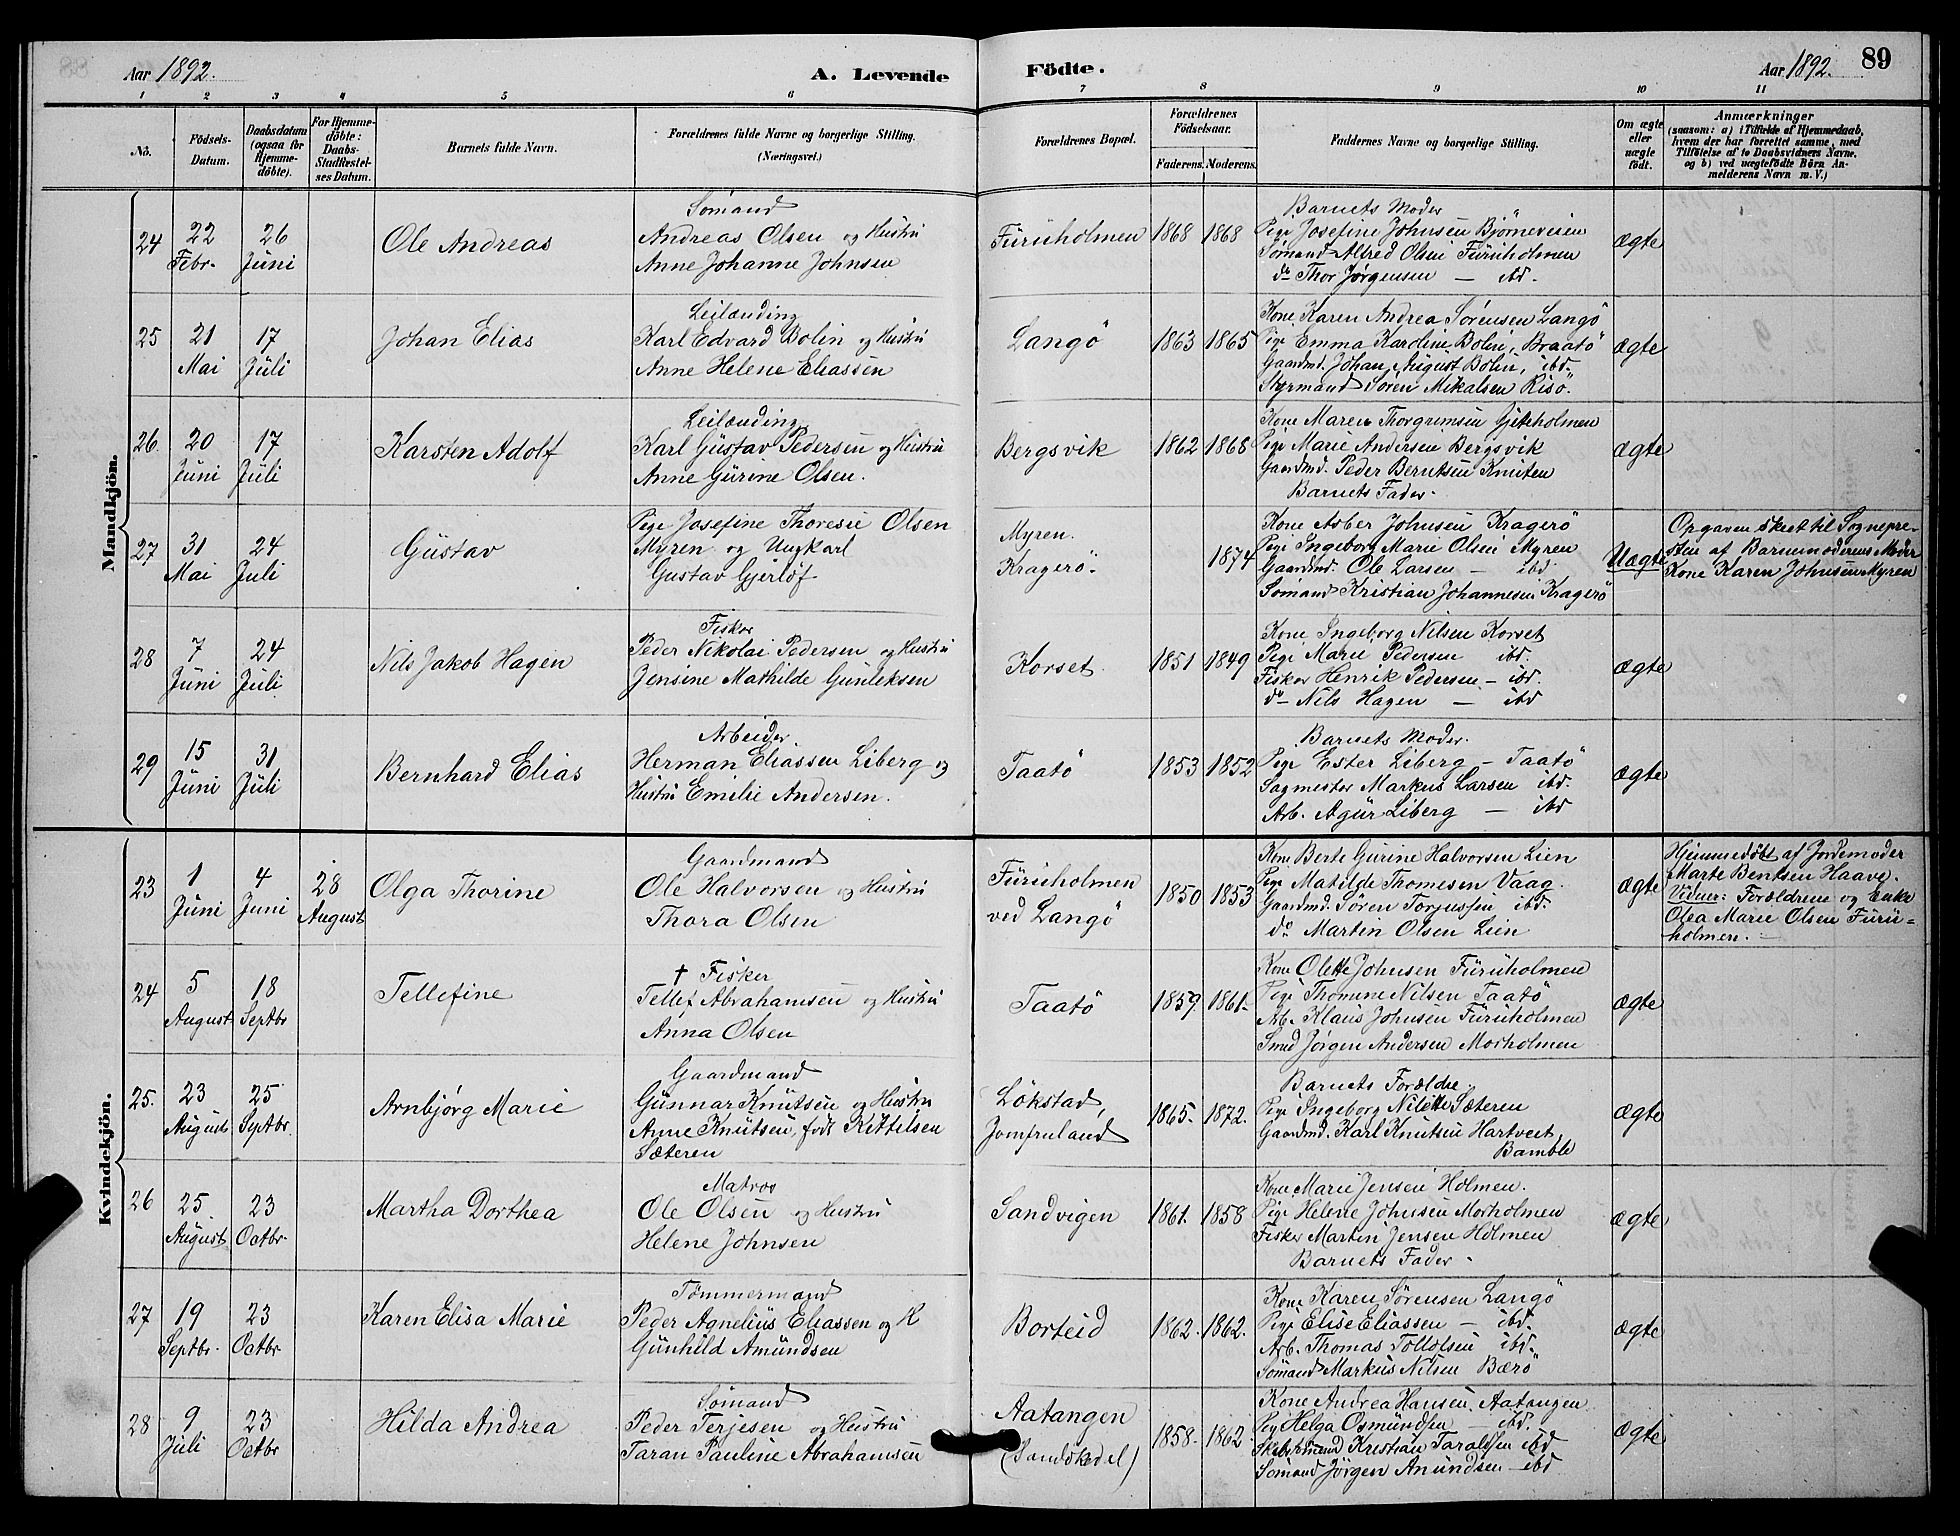 Aar 1892.
A. Levende
Födte.
Aar 1892.
89
1 2 3 4 5 6 7 8 9 10 11
No.
Födsels-Datum.
Daabsdatum (ogsaa for Hjemme-döbte).
For Hjemme-döbte: Daabs-Stadfæstel-ses Datum.
Barnets fulde Navn.
Forældrenes fulde Navne og borgerlige Stilling. (Næringsvei.)
Forældrenes Bopæl.
Forældrenes Födselsaar.
Faderens. Moderens.
Faddernes Navne og borgerlige Stilling.
Om ægte eller uægte födt.
Anmærkninger
(saasom: a) i Tilfælde af Hjemmedaab,
hvem der har forrettet samme, med
Tilföielse af to Daabsvidners Navne,
og b) ved uægtefödte Börn An-
melderens Navn m. V.)
Mandkjön.
24
22 Febr.
26 Juni
Ole Andreas
Sömand
Andreas Olsen og Hustru
Anne Johanne Johnsen
Furuholmen
1868 1868
Barnets Moder
Pige Josefine Johnsen Bjørneveien
Sömand Alfred Olsen Furuholmen
do Thor Jørgensen — ibd.
ægte
25
21 Mai
17 Juli
Johan Elias
Leilænding
Karl Edvard Bolin og Hustru
Anne Helene Eliassen
Langö
1863 1865
Kone Karen Andrea Sørensen Langö
Pige Emma Karoline Bolin, Braatö
Gaardmd. Johan August Bolin, ibd.
Styrmand Sören Mikalsen Risö.
ægte
26.
20 Juni
17 Juli
Karsten Adolf
Leilænding
Karl Gustav Pedersen og Hustru
Anne Gurine Olsen.
Bergsvik
1862 1868
Kone Maren Thorgrimsen Gjeteholmen
Pige Marie Andersen Bergsvik
Gaardmd. Peder Berntsen Knuten
Barnets Fader.
ægte
27
31 Mai
24 Juli
Gustav
Pige Josefine Thoresie Olsen
Myren og Ungkarl
Gustav Gjerløf
Myren.
Kragerö.
1874
Kone Asber Johnsen Kragerö
Pige Ingeborg Marie Olsen Myren
Gaardmd. Ole Larsen — ibd
Sömand Kristian Johannesen Kragerö
Uægte
Opgaven skeet til Sognepre-
sten af Barnemoderens Moder
Kone Karen Johnsen Myren
28
7 Juni
24 Juli
Nils Jakob Hagen
Fisker
Peder Nikolai Pedersen og Hustru
Jensine Mathilde Gunleksen
Korset
1851 1849
Kone Ingeborg Nilsen Korset
Pige Marie Pedersen ibd.
Fisker Henrik Pedersen — ibd.
do Nils Hagen — ibd
ægte
29
15 Juni
31 Juli
Bernhard Elias
Arbeider
Herman Eliassen Liberg og
Hustru Emilie Andersen.
Taatö
1853 1852
Barnets Moder.
Pige Ester Liberg — Taatö
Sagmester Markus Larsen ibd.
Arb. Agur Liberg — ibd
ægte
Kvindekjön.
23
1 Juni
4 Juni
28 August
Olga Thorine
Gaardmand
Ole Halvorsen og Hustru
Thora Olsen
Furuholmen
ved Langö
1850 1853
Kone Berte Gurine Halvorsen Lien
Pige Matilde Thomesen Vaag.
Gaardmd. Sören Torjussen ibd.
do Martin Olsen Lien
ægte
Hjemmedøbt af Jordemoder
Marte Bentsen Haave.
Vidner: Forældrene og Enke
Olea Marie Olsen Furu-
holmen.
24
5 August
18 Septbr
Tellefine
† Fisker
Tellef Abrahamsen og Hustru
Anna Olsen
Taatö
1859. 1861.
Kone Olette Johnsen Furuholmen
Pige Thomine Nilsen Taatö
Arb. Klaus Johnsen Furuholmen
Smed Jørgen Andersen Morholmen
ægte
25.
23 August
25 Septbr.
Arnbjørg Marie
Gaardmand
Gunnar Knutsen og Hustru
Anne Knutsen, født Kittilsen
Sæteren
Lökstad,
Jomfruland
1865. 1872.
Barnets Forældre.
Pige Ingeborg Nilette Sæteren
Gaardmd. Karl Knutsen Hartvert
Bamble
ægte
26
25. August
23 Octbr.
Martha Dorthea
Matros
Ole Olsen og Hustru
Helene Johnsen
Sandvigen
1861. 1858
Kone Marie Jensen Holmen.
Pige Helene Johnsen Morholmen
Fisker Martin Jensen Holmen
Barnets Fader.
ægte
27
19 Septbr.
23 Octbr.
Karen Elisa Marie
Tømmermand
Peder Agnelius Eliassen og H
Gunhild Amundsen
Borteid
1862. 1862.
Kone Karen Sørensen Langö
Pige Elise Eliassen — ibd.
Arb. Thomas Tollolsen ibd.
Sömand Markus Nilsen Bærö
ægte
28
9 Juli
23 Octbr
Hilda Andrea
Sömand
Peder Terjesen og Hustru
Taran Pauline Abrahamsen
Aatangen
(Sandökedel)
1858. 1862
Kone Andrea Hansen, Aatangen
Pig Helga Osmundsen — ibd.
Kristian Taraldsen ibd
Sömand Jørgen Anundsen — ibd
ægte